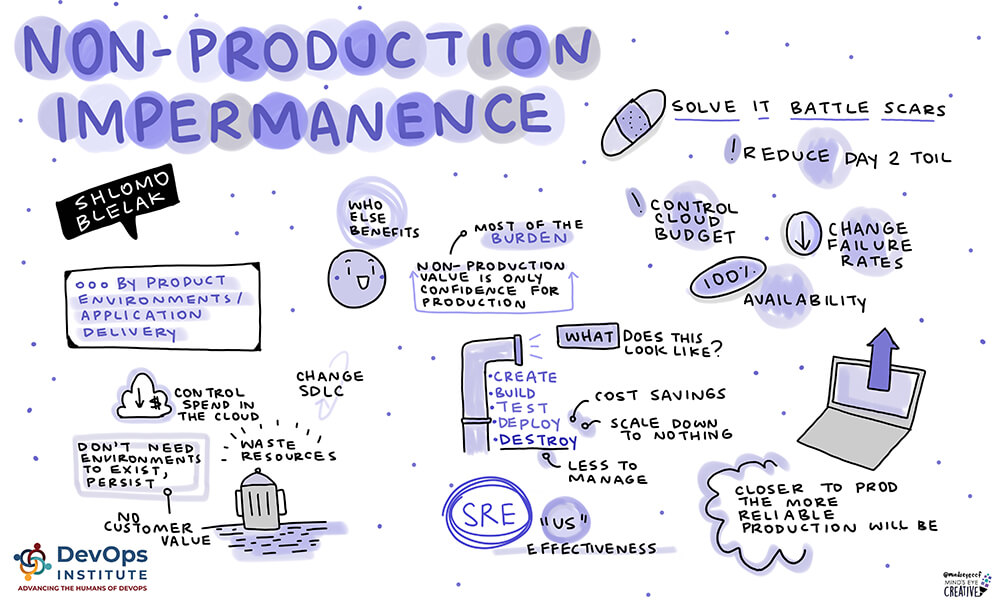 NON-PRODUCTION
IMPERMANENCE
SHLOMO
BLELAK
BY PRODUCT
ENVIRONMENTS/
APPLICATION
DELIVERY
WHO
ELSE
BENEFITS
MOST OF THE
BURDEN
NON-PRODUCTION
VALUE IS ONLY
CONFIDENCE FOR
PRODUCTION
SOLVE IT BATTLE SCARS
! REDUCE DAY 2 TOIL
! CONTROL
CLOUD
BUDGET
CHANGE
FAILURE
RATES
100%
AVAILABILITY
$
CONTROL
SPEND IN
THE CLOUD
CHANGE
SDLC
DON'T NEED
ENVIRONMENTS
TO EXIST,
PERSIST
NO
CUSTOMER
VALUE
WASTE
RESOURCES
WHAT DOES THIS
LOOK LIKE?
•CREATE
•BUILD
•TEST
•DEPLOY
•DESTROY
COST SAVINGS
SCALE DOWN
TO NOTHING
LESS TO
MANAGE
SRE
"US"
EFFECTIVENESS
CLOSER TO PROD
THE MORE
RELIABLE
PRODUCTION WILL BE
DevOps
INSTITUTE
ADVANCING THE HUMANS OF DEVOPS
MIND'S EYE
CREATIVE